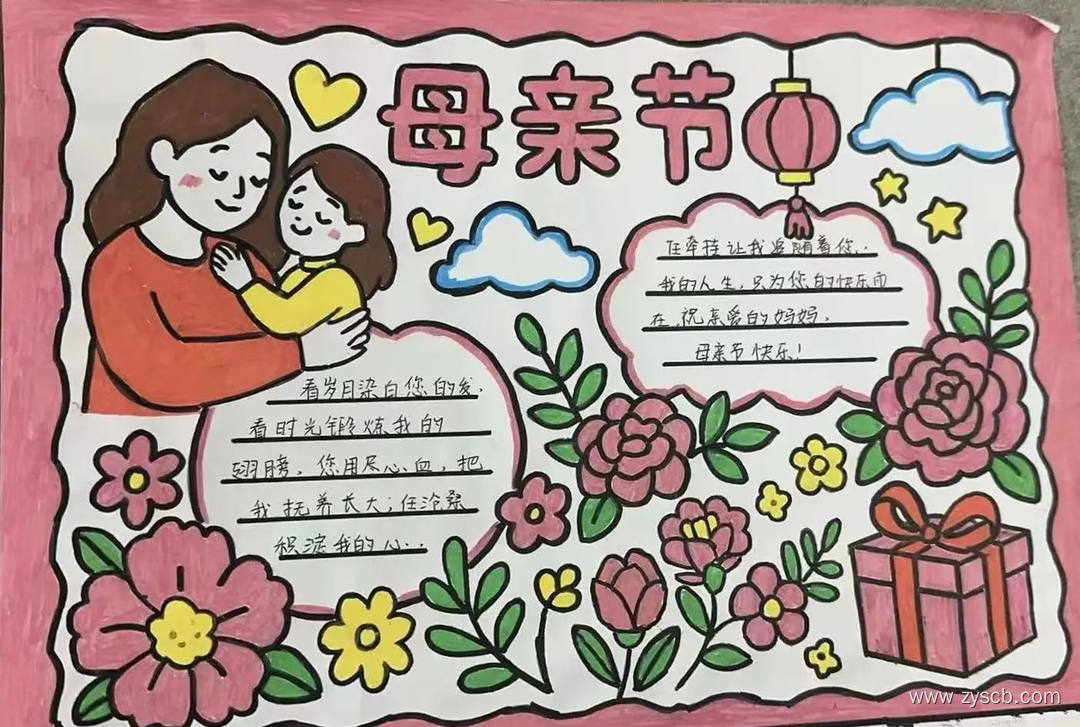 母亲节
看岁月染白您的发,
看时光锻炼我的
翅膀。您用尽心血,把
我抚养长大;任沧桑
积淀我的心..
任牵挂让我追随着您..
我的人生,只为您的快乐而
在,祝亲爱的妈妈,
母亲节快乐!
www.zyscb.com